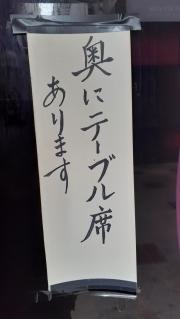 奥にテーブル席
あります